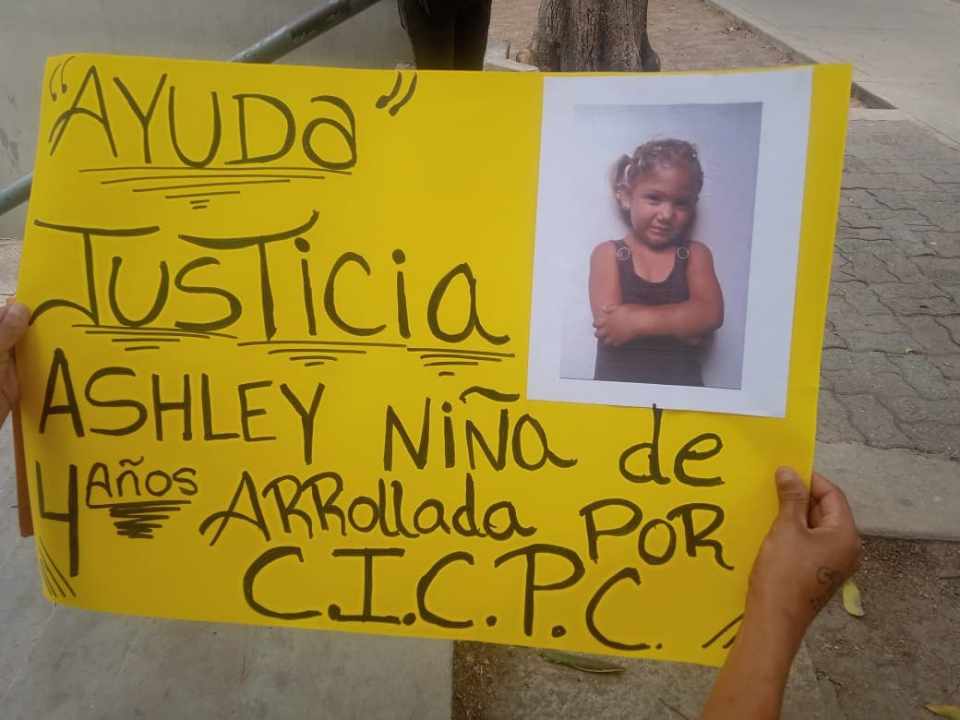 "AYUDA"
JUSTICIA
ASHLEY NIÑA de
4 AÑOS ARROllada POR
C.I.C.P.C.